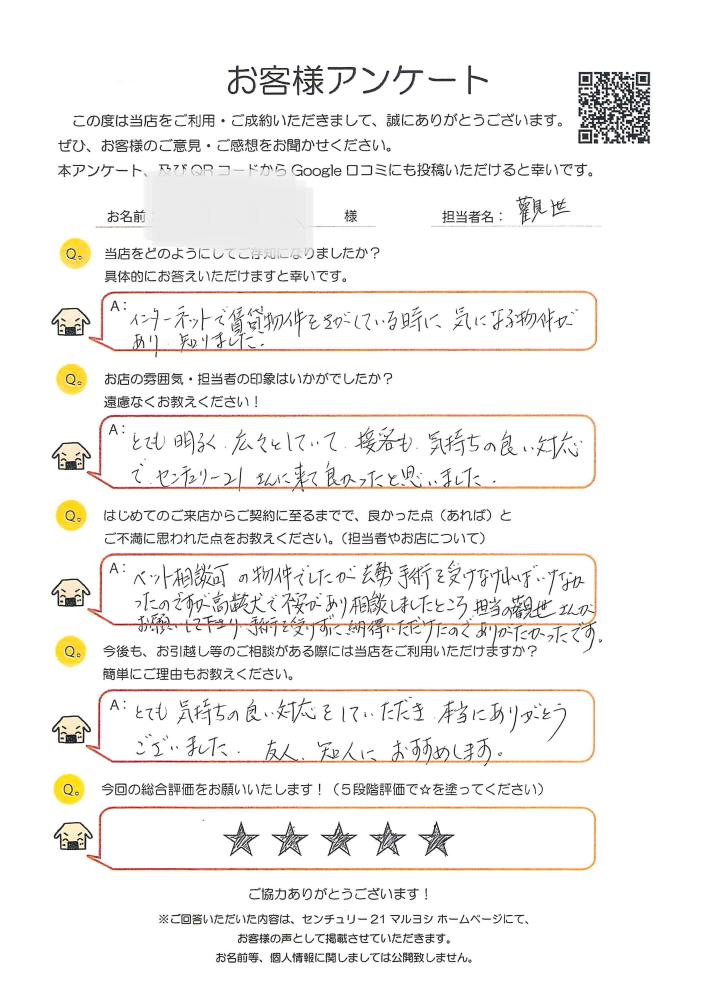 お客様アンケート
この度は当店をご利用・ご成約いただきまして、誠にありがとうございます。
ぜひ、お客様のご意見・ご感想をお聞かせください。
本アンケート、及びQRコードからGoogle口コミにも投稿いただけると幸いです。
お名前: 様 担当者名: 觀世
Q。 当店をどのようにしてご存知になりましたか?
具体的にお答えいただけますと幸いです。
A: インターネットで賃貸物件をさがしている時に、気になる物件が
あり、知りました。
Q。 お店の雰囲気・担当者の印象はいかがでしたか?
遠慮なくお教えください!
A: とても明るく、広々としていて、接客も、気持ちの良い対応
で、センチュリー21さんに来て良かったと思いました。
Q。 はじめてのご来店からご契約に至るまでで、良かった点(あれば)と
ご不満に思われた点をお教えください。(担当者やお店について)
A: ペット相談可の物件でしたが去勢手術を受けなければいけなか
ったのですが高齢犬で不安があり相談しましたところ担当の觀世さんが
お願いして下さり手術を受けずに納得いただけたのでありがたかったです。
Q。 今後も、お引越し等のご相談がある際には当店をご利用いただけますか?
簡単にご理由もお教えください。
A: とても気持ちの良い対応をしていただき、本当にありがとう
ございました。友人、知人におすすめします。
Q。 今回の総合評価をお願いいたします!(5段階評価で☆を塗ってください)
★★★★★
ご協力ありがとうございます!
※ご回答いただいた内容は、センチュリー21マルヨシ ホームページにて、
お客様の声として掲載させていただきます。
お名前等、個人情報に関しましては公開致しません。